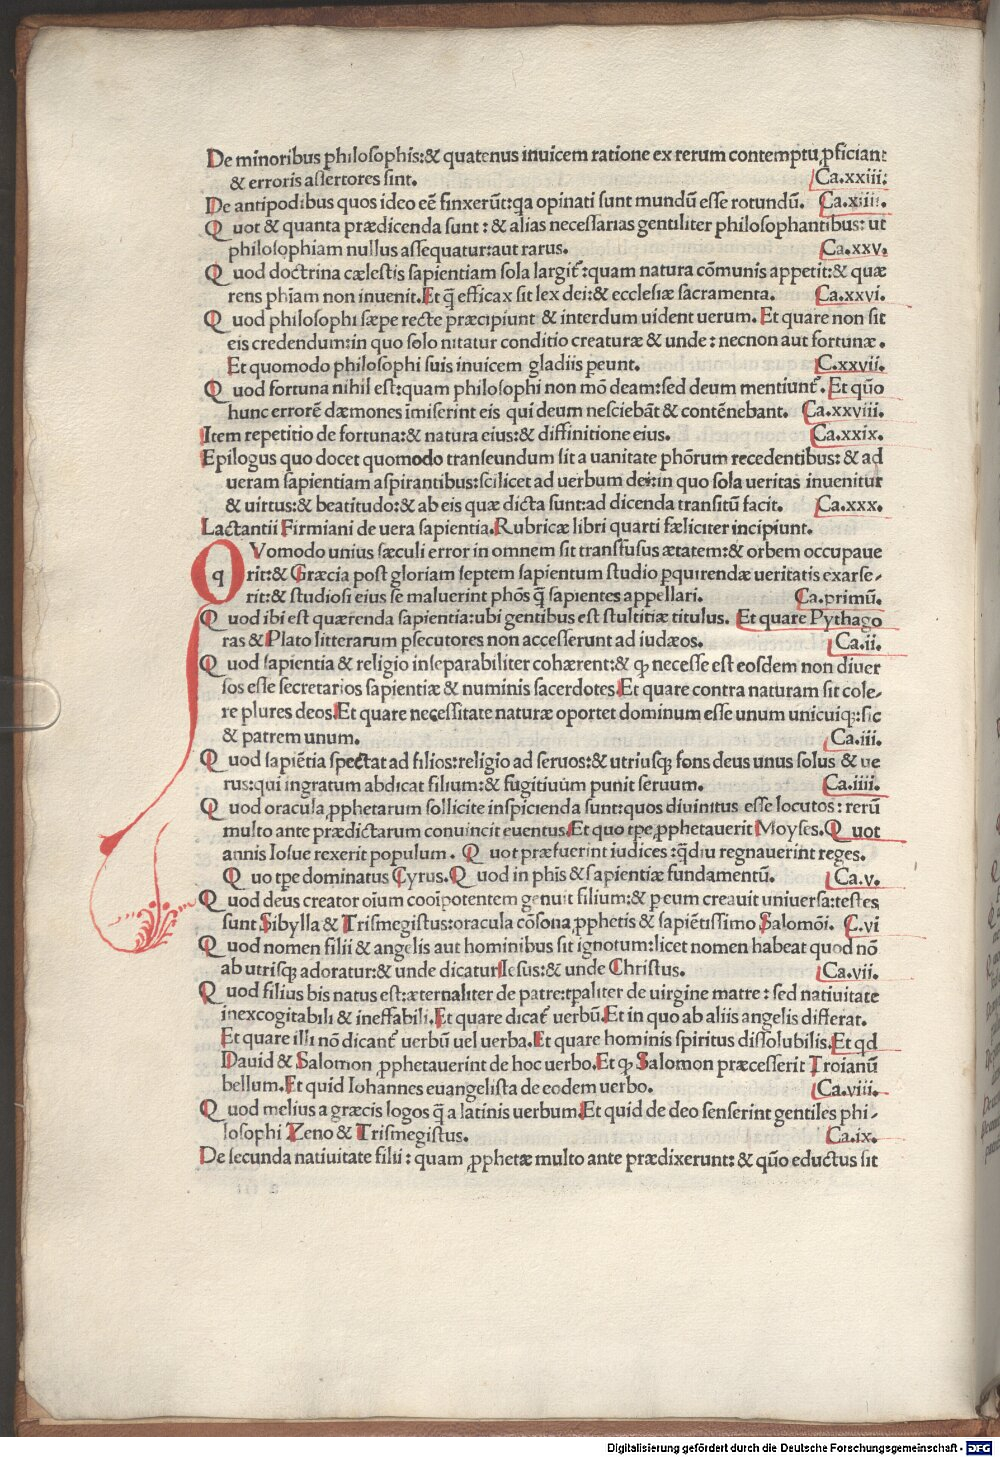 De minoribus philosophis:& quatenus inuicem ratione ex rerum contemptu ꝓficiant
& erroris assertores sint. Ca.xxiii:
De antipodibus quos ideo eē finxerūt:qa opinati sunt mundū esse rotundū. Ca.xiiii.
Quot & quanta prædicenda sunt : & alias necessarias gentiliter philosophantibus: ut
philosophiam nullus assequatur:aut rarus. Ca.xxv.
Quod doctrina cælestis sapientiam sola largit᷑:quam natura cōmunis appetit:& quæ
rens phiam non inuenit.Et q̄ efficax sit lex dei:& ecclesiæ sacramenta. Ca.xxvi.
Quod philosophi sæpe recte præcipiunt & interdum uident uerum. Et quare non sit
eis credendum:in quo solo nitatur conditio creaturæ & unde : necnon aut fortunæ.
Et quomodo philosophi suis inuicem gladiis peunt. C.xxvii.
Quod fortuna nihil est:quam philosophi non mō deam:sed deum mentiunt᷑. Et quō
hunc errorē dæmones imiserint eis qui deum nesciebāt & contēnebant. Ca.xxviii.
Item repetitio de fortuna:& natura eius:& diffinitione eius. Ca.xxix.
Epilogus quo docet quomodo transeundum sit a uanitate phōrum recedentibus: & ad
ueram sapientiam aspirantibus:scilicet ad uerbum dei:in quo sola ueritas inuenitur
& uirtus:& beatitudo:& ab eis quæ dicta sunt:ad dicenda transitū facit. Ca.xxx.
Lactantii Firmiani de uera sapientia.Rubricæ libri quarti fæliciter incipiunt.
QVomodo unius sæculi error in omnem sit transfusus ætatem:& orbem occupaue
q rit:& Græcia post gloriam septem sapientum studio pquirendæ ueritatis exarse-
rit:& studiosi eius se maluerint phōs q̄ sapientes appellari. Ca.primū.
Quod ibi est quærenda sapientia:ubi gentibus est stultitiæ titulus. Et quare Pythago
ras & Plato litterarum psecutores non accesserunt ad iudæos. Ca.ii.
Quod sapientia & religio inseparabiliter cohærent:& ꝙ necesse est eosdem non diuer
sos esse secretarios sapientiæ & numinis sacerdotes.Et quare contra naturam sit cole-
re plures deos.Et quare necessitate naturæ oportet dominum esse unum unicuiqꝫ:sic
& patrem unum. Ca.iii.
Quod sapiētia spectat ad filios:religio ad seruos:& utriusqꝫ fons deus unus solus & ue
rus:qui ingratum abdicat filium:& fugitiuum punit seruum. Ca.iiii.
Quod oracula ꝓphetarum sollicite inspicienda sunt:quos diuinitus esse locutos : rerū
multo ante prædictarum conuincit euentus.Et quo tpe ꝓphetauerit Moyses.Quot
annis Iosue rexerit populum . Quot præfuerint iudices :q̄diu regnauerint reges.
Quo tpe dominatus Cyrus.Quod in phis & sapientiæ fundamentū. Ca.v.
Quod deus creator oium cooīpotentem genuit filium:& p eum creauit uniuersa:testes
sunt Sibylla & Trismegistus:oracula cōsona ꝓphetis & sapiētissimo Salomōi. C.vi
Quod nomen filii & angelis aut hominibus sit ignotum:licet nomen habeat quod nō
ab utrisqꝫ adoratur:& unde dicatur Iesus:& unde Christus. Ca.vii.
Quod filius bis natus est:æternaliter de patre:tpaliter de uirgine matre : sed natiuitate
inexcogitabili & ineffabili.Et quare dicat᷑ uerbū.Et in quo ab aliis angelis differat.
Et quare illi nō dicant᷑ uerbū uel uerba.Et quare hominis spiritus dissolubilis.Et qd
Dauid & Salomon ꝓphetauerint de hoc uerbo.Et ꝙ Salomon præcesserit Troianū
bellum.Et quid Iohannes euangelista de eodem uerbo. Ca.viii.
Quod melius a græcis logos q̄ a latinis uerbum.Et quid de deo senserint gentiles phi-
losophi Zeno & Trismegistus. Ca.ix.
De secunda natiuitate filii : quam ꝓphetæ multo ante prædixerunt: & quō eductus sit
Digitalisierung gefördert durch die Deutsche Forschungsgemeinschaft - DFG